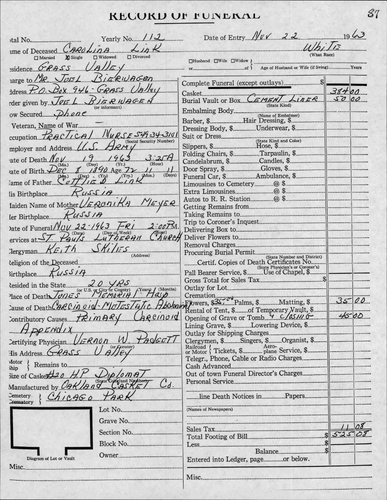 RECORD OF FUNERAL
87
tal No. Yearly No. 112 Date of Entry Nov 22 1963
me of Deceased Carolina Link White
(What Race)
Married Single Widowed Divorced Husband Wife Widow Age of Husband or Wife (if living) Years
esidence Grass Valley
arge to Mr. Joel Bierwagen
Address P.O. Box 946 - Grass Valley
rder given by Joel Bierwagen
(or informant)
ow Secured phone
Veteran, Name of War
ccupation Practical Nurse
mployer and Address U.S. Army
ate of Death Nov 19 1963 3:25A
ate of Birth Dec 8 1890 Age 72 11 11
ame of Father Gottlied Link
lis Birthplace Russia
Maiden Name of Mother Veronika Meyer
er Birthplace Russia
ate of Funeral Nov-22-1963 Fri 2:00 Pm
ervices at St Pauls Lutheran Church
lergyman Keith Skiles
eligion of the Deceased
irthplace Russia
esided in the State 20 yrs
lace of Death Jones Memorial Hosp
ause of Death Carcinoid-Metastatic Abdominal
ontributory Causes Primary Carcinoid
Appendix
Certifying Physician Vernon W. Padgett
His Address Grass Valley
Motor
Ship Remains to
ize of Casket H.P Diplomat
Manufactured by Oakland Casket Co.
Cemetery
Crematory Chicago Park
Lot No.
Grave No.
Section No.
Block No.
Owner
Diagram of Lot or Vault
Misc.
Complete Funeral (except outlays) $
Casket 384 00
Burial Vault or Box Cement Liner 50 00
(State Kind)
Embalming Body
(Name of Embalmer)
Barber, $ Hair Dressing, $
Dressing Body, $ Underwear, $
Suit or Dress
(State Kind and Color)
Slippers, $ Hose, $
Folding Chairs, $ Tarpaulin, $
Candelabrum, $ Candles, $
Door Spray, $ Gloves, $
Funeral Car, $ Ambulance, $
Limousines to Cemetery @ $
Extra Limousines @ $
Autos to R. R. Station @ $
Getting Remains from
Taking Remains to
Trip to Coroner's Inquest
Delivering Box to
Deliver Flowers to
Removal Charges
Procuring Burial Permit
(State Number and District)
Certif. Copies of Death Certificates No.
(State Physician's or Coroner's)
Pall Bearer Service, $ Use of Chapel, $
Gross Total for Sales Tax $
Outlay for Lot
Cremation
Flowers, $35.00 Palms, $ Matting, $ 35 00
Rental of Tent, $ of Temporary Vault, $
Opening of Grave or Tomb & Closing 45 00
Lining Grave, $ Lowering Device, $
Outlay for Shipping Charges
Clergymen, $ Singers, $ Organist, $
Railroad or Motor Tickets, $ Aeroplane Service, $
Telegr., Phone, Cable or Radio Charges
Cash Advanced
Out of town Funeral Director's Charges
Personal Service
line Death Notices in Papers
(Names of Newspapers)
Sales Tax 11 08
Total Footing of Bill $ 525 08
Less $
Balance $
Entered into Ledger, page or below.
Misc.